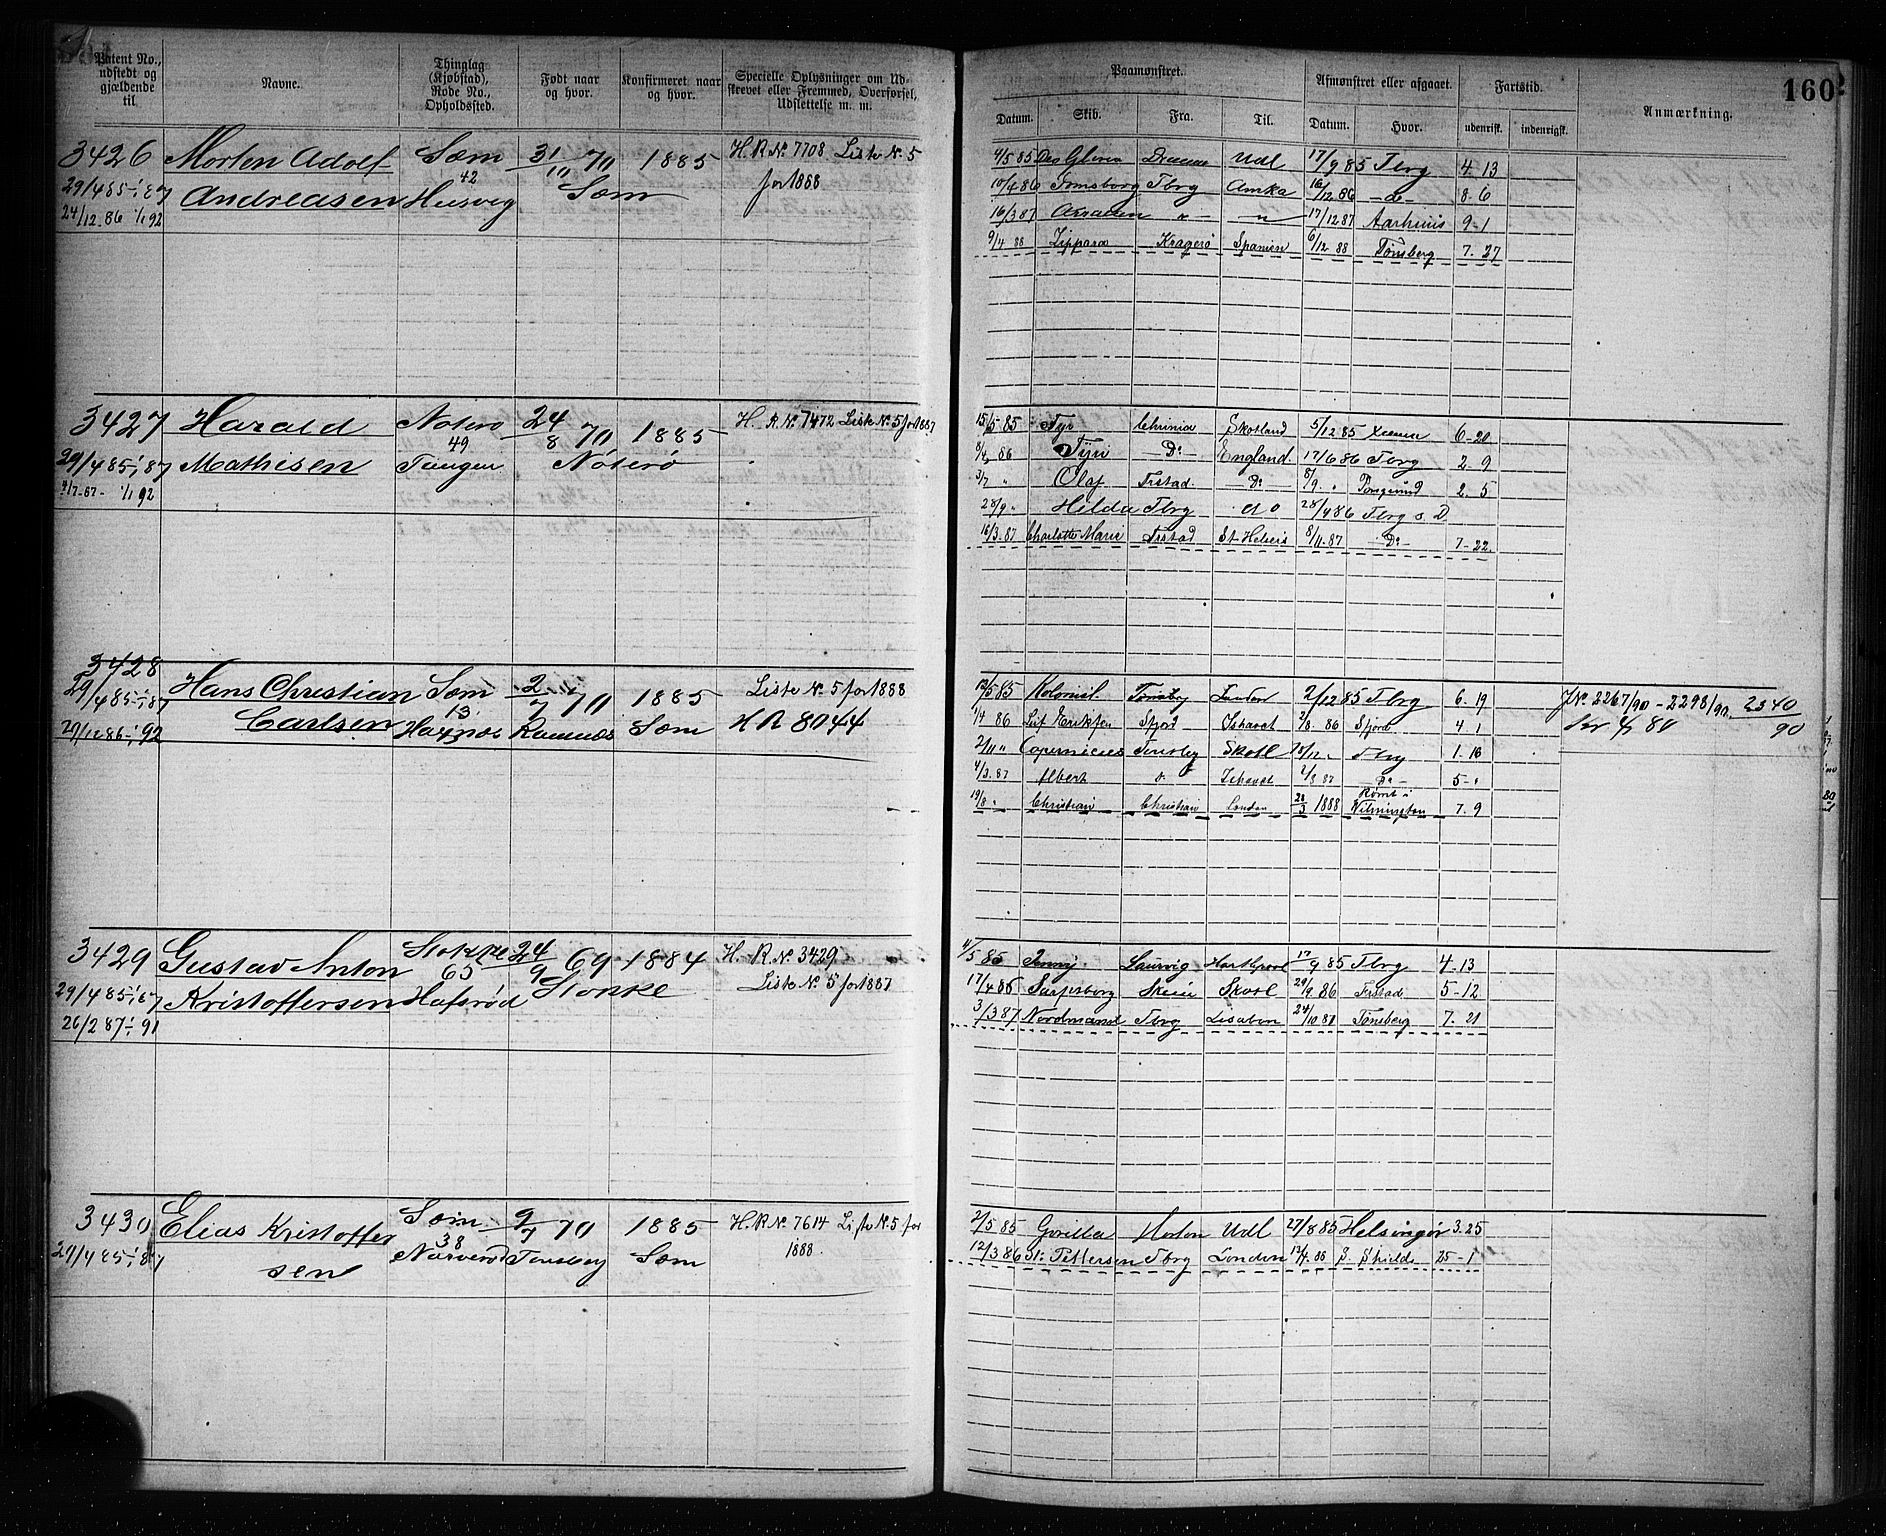 160
Patent No., udstedt og gjældende til.
Navne.
Thinglag (Kjøbstad), Rode No., Opholdssted.
Født naar og hvor.
Konfirmeret naar og hvor.
Specielle Oplysninger om Udskrevet eller Fremmed, Overførsel, Udslettelse m. m.
Paamønstret.
Datum. Skib. Fra. Til.
Afmønstret eller afgaaet.
Datum. Hvor.
Fartstid.
udenrisk. indenrigsk.
Anmærkning.
3426 Morten Adolf Sæm 31/10 70 1885 H.R.No. 7708 Liste No. 5
29/4 85 - 1/1 87 Andreasen 42 Husvig Sæm for 1888
24/12. 86 1/1 92
4/5 85 Gloria Udl 17/9 85 Tbrg 4. 13
10/4 86 Tønsberg Tbrg Amka 16/12 86 8. 6
16/3 87 17/12 87 Aarhuus 9-1
9/4 88 Kragerø Spanien 6/12 88 Tønsberg 7. 27
3427 Harald Nøterø 24/8 70 1885 H. R.No. 7472 Liste No. 5 for 1887
29/4 85 - 1/1 87 Mathisen 49 Nøterø
4/7-87 - 1/1 92
15/5-85 Tyr Skotland 5/12 85 6-20
86 Do England 17/6 86 Tbrg 2. 9
3/7 " Olaf Frstad. Do 8/9. " 2. 5
28/9 " Hilda Tbrg 28/9 86 Tbrg s. D
16/3. 87 Charlotte Marie Frstad 8/11. 87 Do 7-22.
3428 Hans Christian Sæm 2/7 70 1885 Liste No. 5 for 1888
29/4 85 - 1/1 87 Carlsen 13. Ramnæs Sæm H R 8044
1/1 92
12/5 85 Kolonist. Tønsbrg London 2/12 85 Tbrg 6. 19 JNo. 2267/90 - 2298/90. 2340/90
1/4 86 Leif Erikson Sfjord 86 Sfjord 4. 1
2/11 " Copernicus Tønsbg Skotl Tbrg 1. 16
4/3. 87 Albert 2/8 87 Do 5-
19/8 " Christian Christian London 28/3 1888 Rømt i Wilmington 7. 9
3429 Gustav Anton Stokke 24/9 69 1884 H. R.No. 3429
29/4 85 - 1/1 87 Kristoffersen 65 Hafsrød Stokke Liste No. 5 for 1887
26/2 87 1/1 91
4/5 85 Jenny. Laurvig Hartlpool 17/9 85 Tbrg 4. 13
17/4 86 Sarpsborg Skien Skotl 29/9. 86 Frstad 5-12
3/3 87 Nordmand Tbrg Lisabon 24/10 87 Tønsberg 7. 21
3430 Elias Kristoffer Sæm 9/7 70 1885 H. R. No. 7614 Liste N. 5 for
29/4 85 - 1/1 87 sen 38 Tønsberg Sæm 1888.
2/5 85 Gorilla Horten Udl 27/8 85 Helsingør 3.25
12/3 86 St: Pettersen Tbrg London 25-1